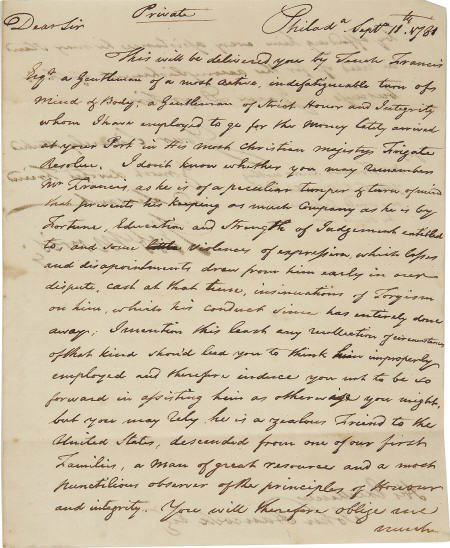 Private
Dear Sir Philad.a Sept.r 11th 1781
This will be delivered you by Tench Francis
Esq.r a Gentleman of a most active, indefatigueable turn of
Mind & Body; a Gentleman of Strict Honor and Integrity
whom I have employed to go for the Money lately arrived
at your Port in His most Christian majestys Frigate
Resolue. I dont know whether you may remember
Mr Francis, as he is of a peculiar temper & turn of mind
that prevents his keeping as much Company as he is by
Fortune, Education and Strength of Judgement entitled
to, and some violences of expression, which losses
and disapointments drew from him early in our
dispute, cast at that time, insinuations of Toryism
on him, which his conduct since has entirely done
away; I mention this least any recollection of circumstances
of that kind should lead you to think him improperly
employed and therefore induce you not to be so
forward in assisting him as otherwise you might,
but you may rely he is a zealous Friend to the
United States, descended from one of our first
Families, a man of great resource and a most
punctilious observer of the principles of Honour
and integrity. You will therefore oblige me
much